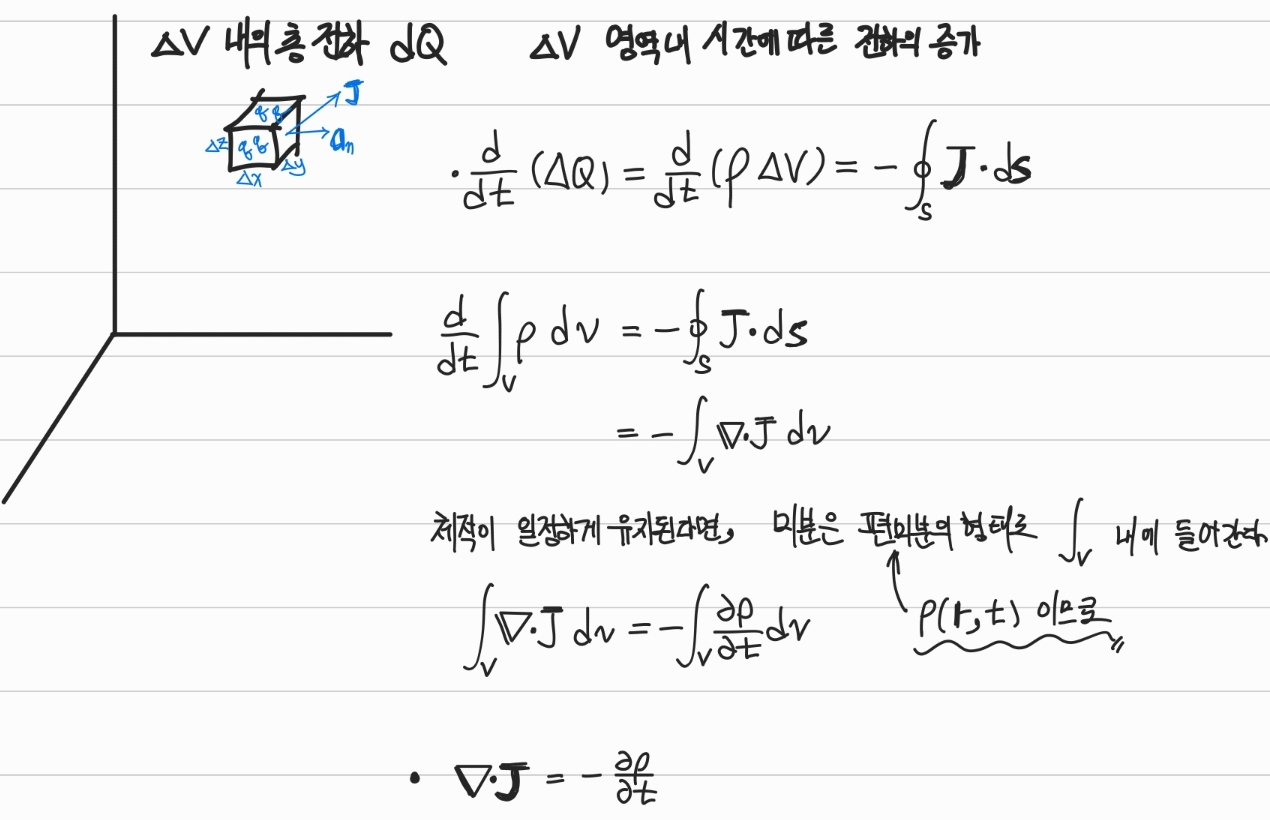 ΔV 내의 총 전하 dQ ΔV 영역내 시간에 따른 전하의 증가
q q J
Δz q q an
Δx Δy
· d/dt (ΔQ) = d/dt (ρ ΔV) = - ∮S J · ds
d/dt ∫V ρ dv = - ∮S J · ds
= - ∫V ∇·J dv
체적이 일정하게 유지된다면, 미분은 편미분의 형태로 ∫V 내에 들어간다
∫V ∇·J dv = - ∫V ∂ρ/∂t dv ρ(r, t) 이므로
· ∇·J = - ∂ρ/∂t